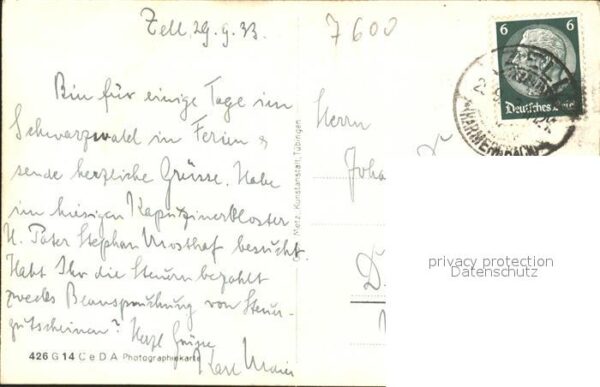 Zell 29.9.33.
7600
Bin für einige Tage im
Schwarzwald in Ferien &
sende herzliche Grüsse. Habe
im hiesigen Kapuzinerkloster
H. Pater Stephan Mosthaf besucht.
Habt Ihr die Steuern bezahlt
zwecks Beanspruchung von Steuer-
gutscheinen? Herzl Grüsse
Karl Maier
426 G 14 C e D A Photographiekarte
Metz, Kunstanstalt, Tübingen
6 6
Deutsches Reich
Herrn
Joha
D.
privacy protection
Datenschutz